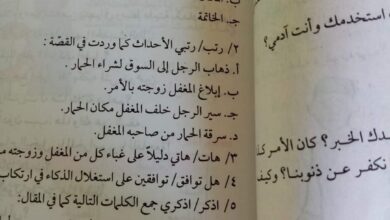 استخدمك وأنت آدمي؟
دك الخبر؟ كان الأمر
نكفر عن ذنوبنا؟ وكيف
ب.
جـ. الخاتمة
٢/ رتب/ رتبي الأحداث كما وردت في القصّة:
أ. ذهاب الرجل إلى السوق لشراء الحمار.
ب. إبلاغ المغفل زوجته بالأمر.
جـ. سير الرجل خلف المغفل مكان الحمار.
د. سرقة الحمار من صاحبه المغفل.
٣/ هات/ هاتي دليلاً على غباء كل من المغفل وزوجته
٤/ هل توافق/ توافقين على استغلال الذكاء في ارتكاب
٥/ اذكر/ اذكري جمع الكلمات التالية كما في المقال: